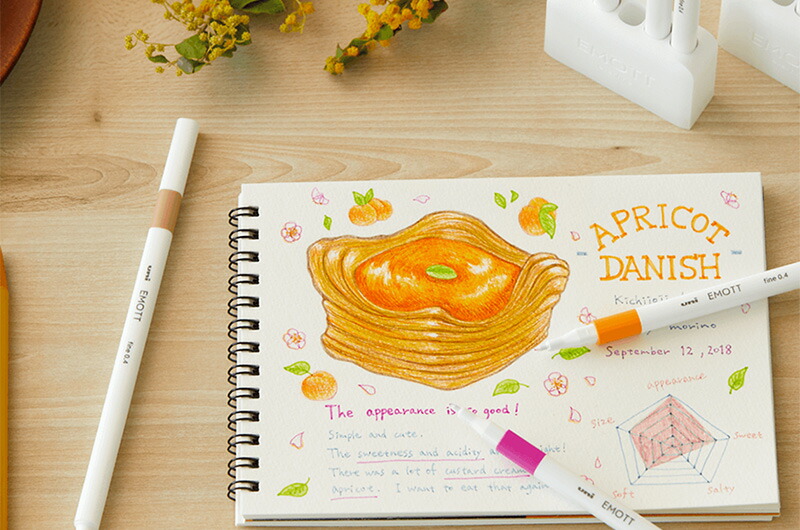 EMOTT
APRICOT
DANISH
Kichijoji
uni EMOTT fine 0.4
morino
September 12, 2018
uni EMOTT fine 0.4
The appearance is so good!
Simple and cute.
The sweetness and acidity
There was a lot of custard cream
apricot. I want to eat that again
appearance
size
sweet
soft
salty
uni EMOTT